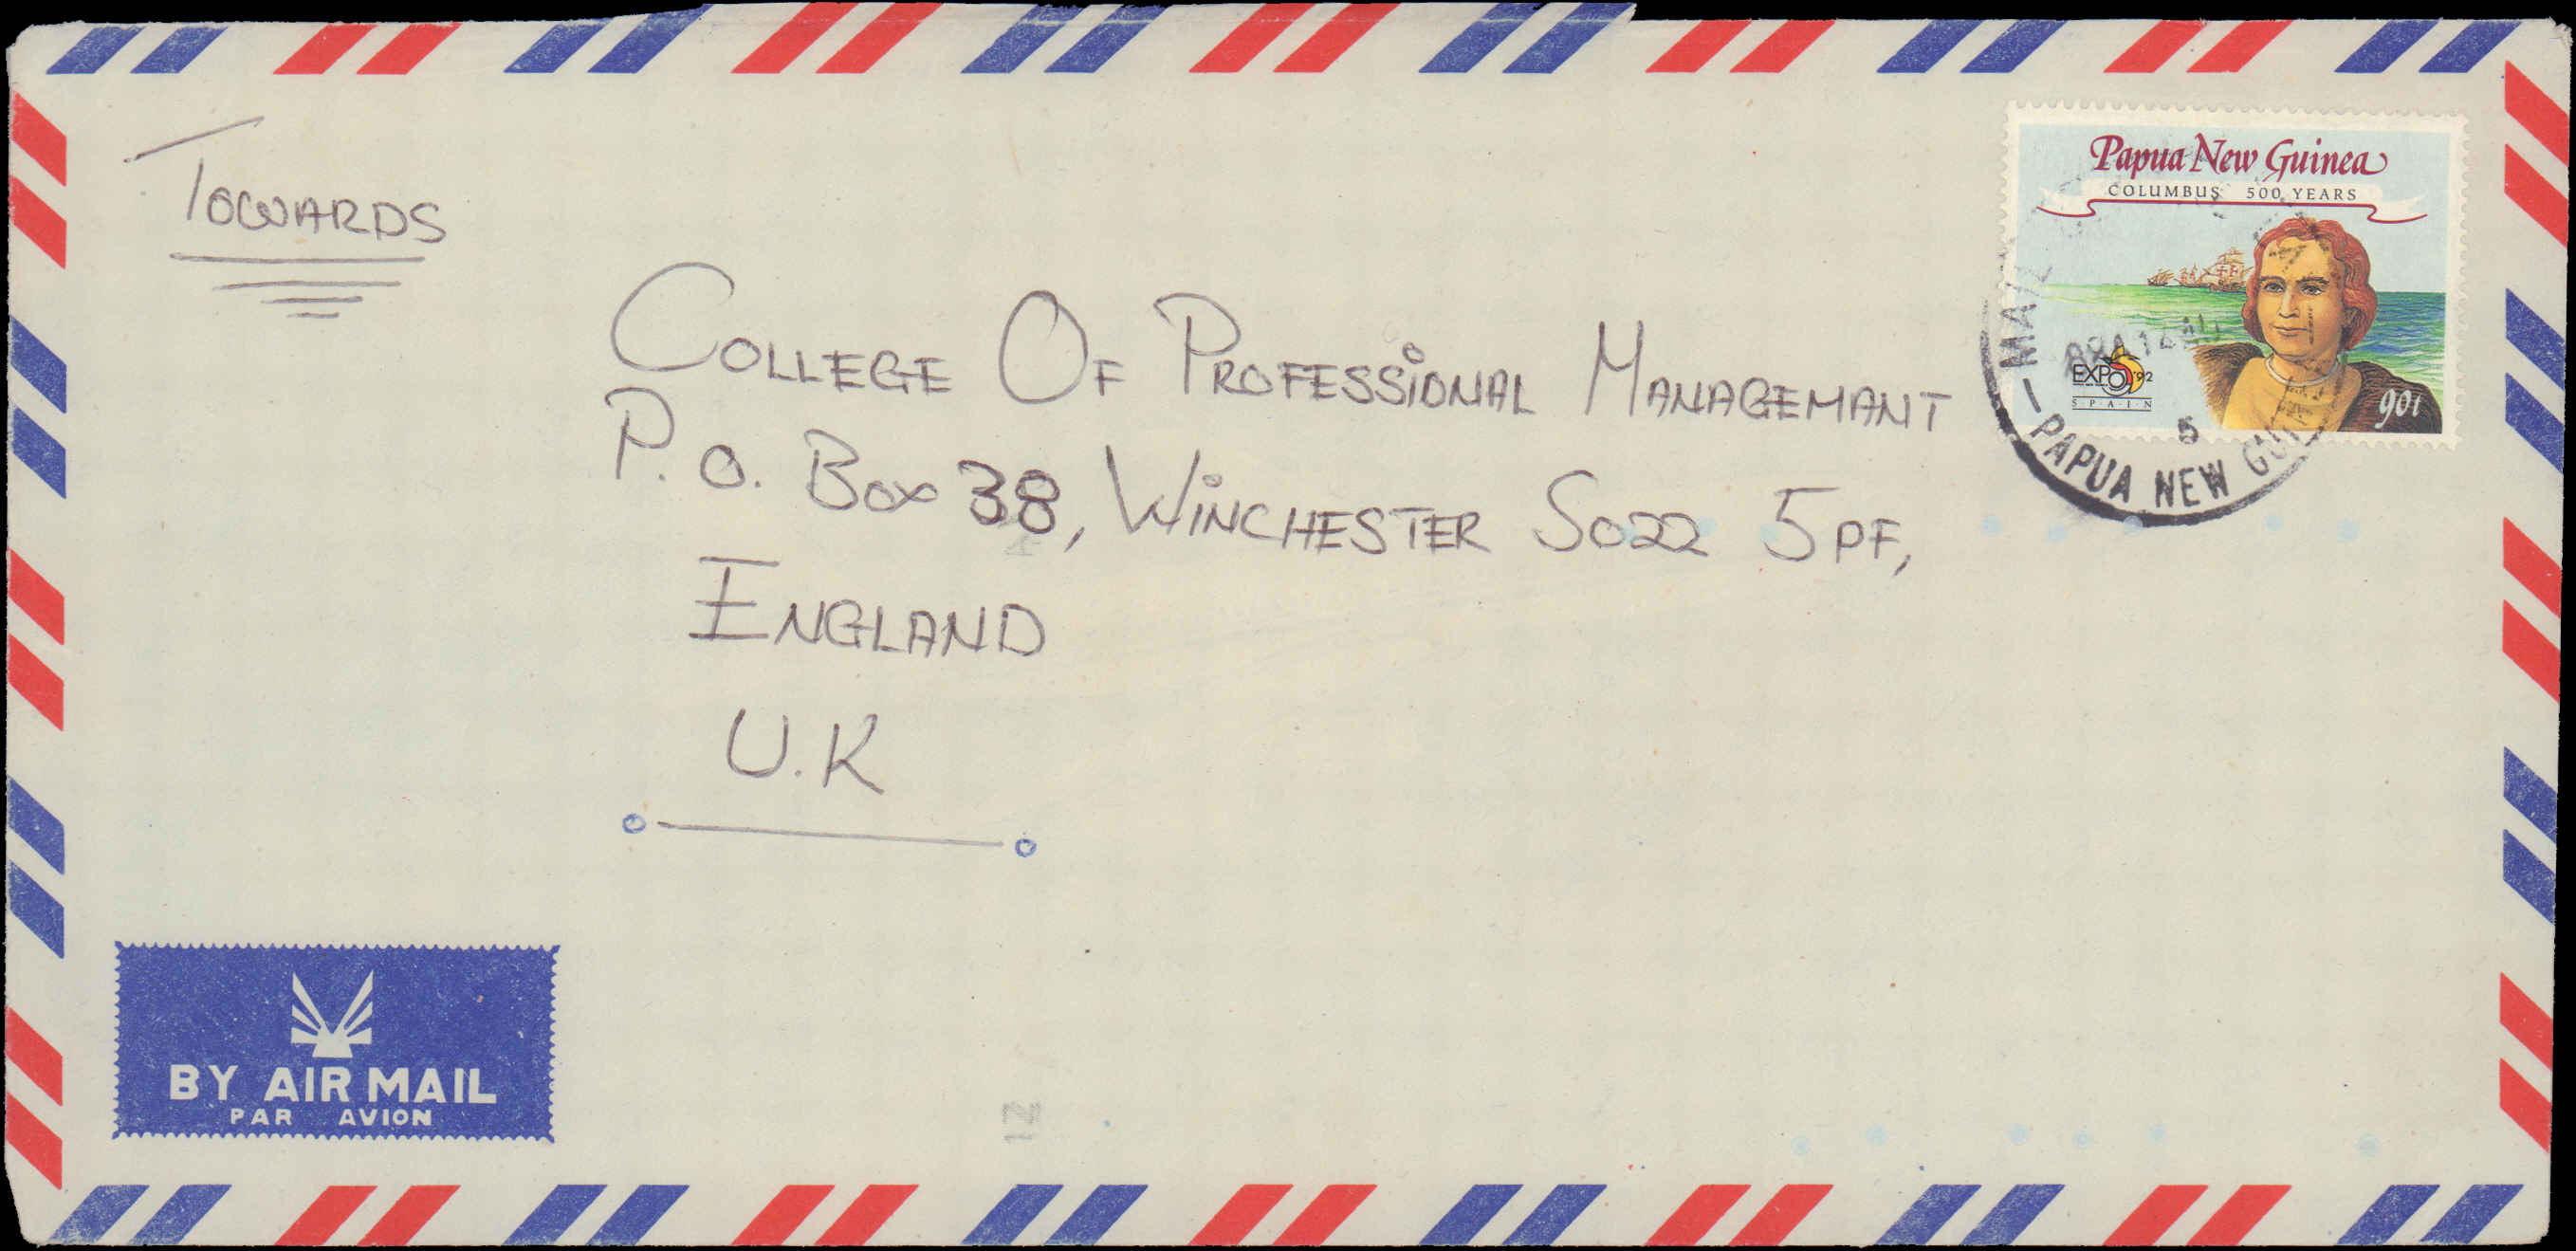 TOWARDS
COLLEGE OF PROFESSIONAL MANAGEMANT
P.O. BOX 38, WINCHESTER SO22 5PF,
ENGLAND
U.K
Papua New Guinea
COLUMBUS 500 YEARS
EXPO '92
S·P·A·I·N
90t
MAIL
5
PAPUA NEW
BY AIR MAIL
PAR AVION
12